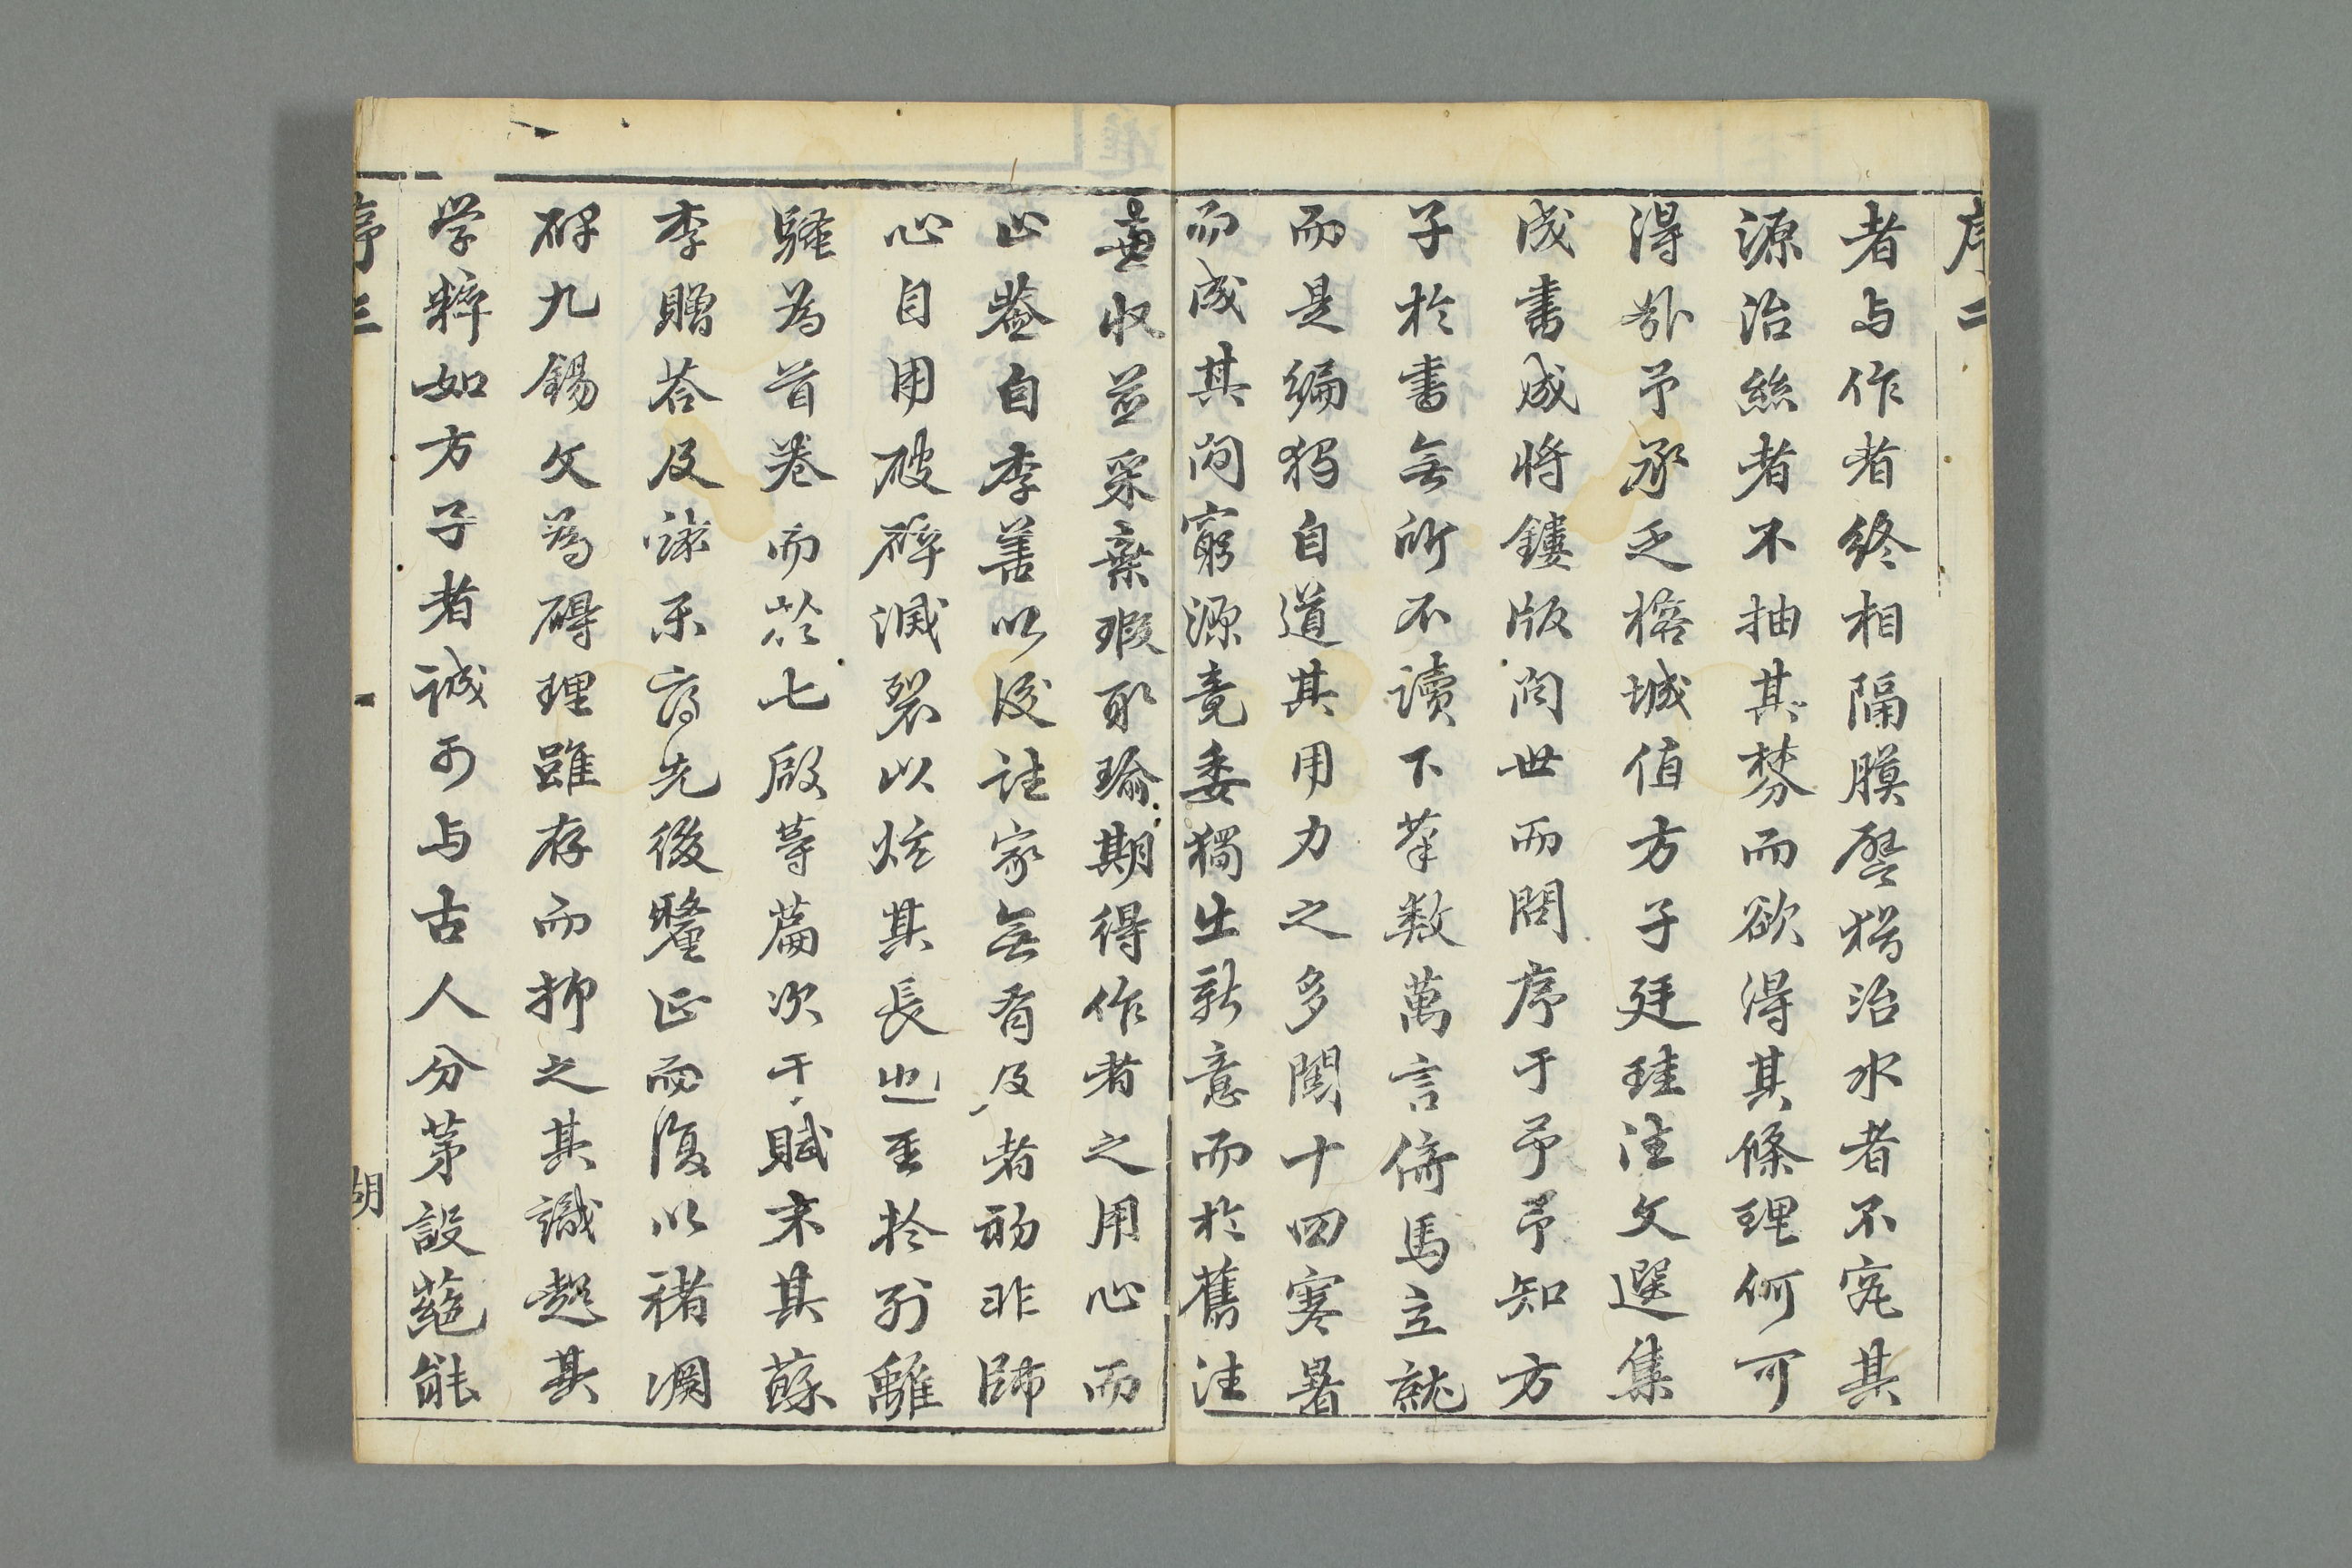 序二
者与作者终相隔膜譬猶治水者不究其
源治絲者不抽其棼而欲得其條理何可
得哉予承乏榕城值方子廷珪注文選集
成書成将鏤版问世而問序于予予知方
子於書無所不讀下筆数萬言倚馬立就
而是编独自道其用力之多閱十四寒暑
而成其间窮源竟委獨出新意而於舊注
收並采棄瑕取瑜期得作者之用心而
止蓋自李善以後註家無有及者初非師
心自用破碎滅裂以炫其長也至於列離
騷為首卷而於七啟等篇次于賦末其蘇
李贈荅及詠先後釐正而復以褚淵
碑九錫文為碍理雖存而抑之其識超其
学粹如方子者诚可与古人分茅設蕝能
序三
胡